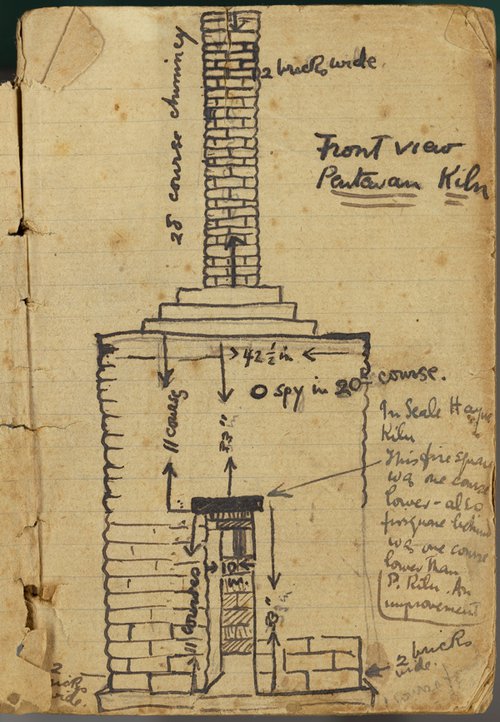 28 course chimney
2 bricks wide.
Front view
Pentewan Kiln
42 ½ in
O spy in 20 course.
11 courses
33"
In Scale
Kiln
This fire square
was one course
lower - also
fireguone behind
was one course
lower than
P. Kiln. An
improvement
10
in.
11 courses
33"
2 bricks
wide.
2
bricks
wide.